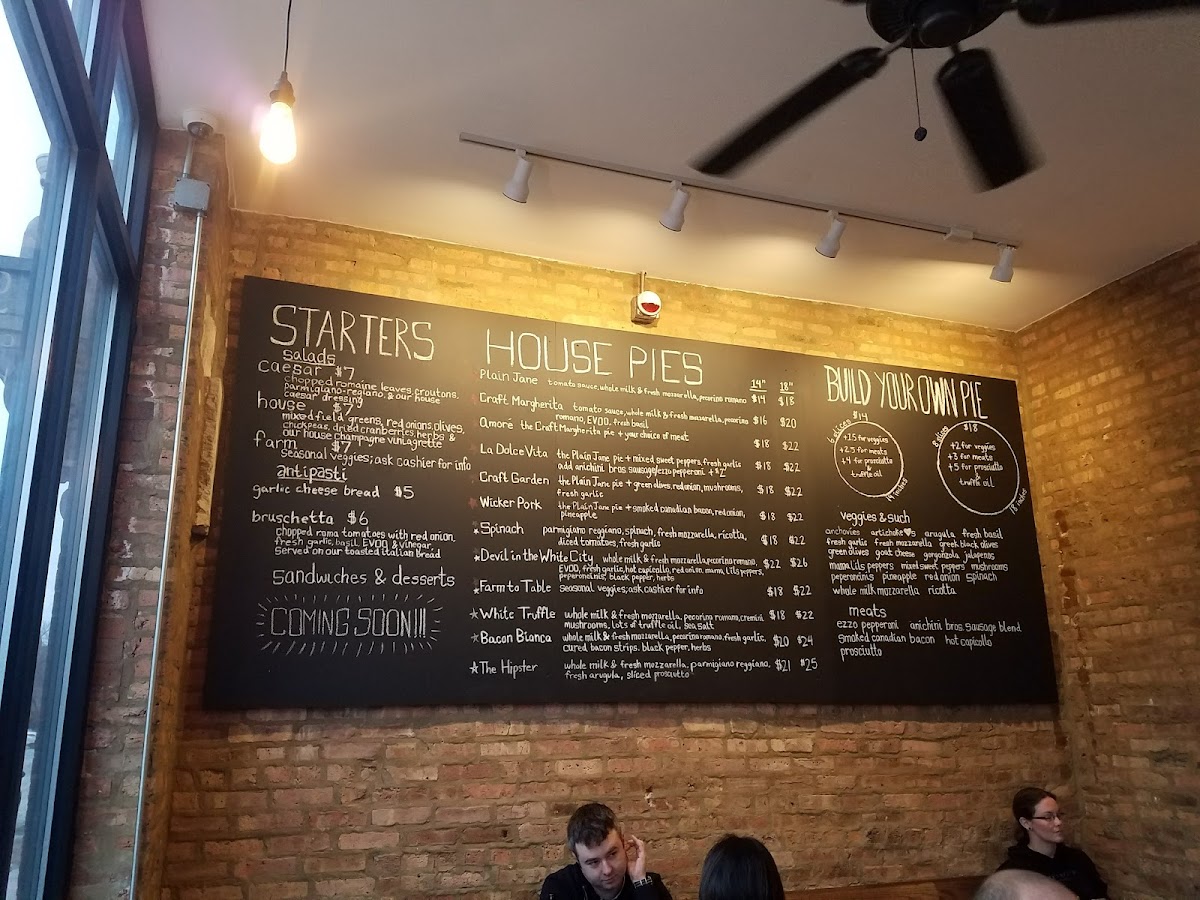 STARTERS
salads
caesar $7
chopped romaine leaves, croutons,
parmigiano regiano, & our house
caesar dressing
house $7
mixed field greens, red onions, olives,
chickpeas, dried cranberries, herbs &
our house champagne viniagrette
farm $7
seasonal veggies; ask cashier for info
antipasti
garlic cheese bread $5
bruschetta $6
chopped roma tomatoes with red onion,
fresh garlic, basil, EVOO & vinegar,
served on our toasted italian bread
sandwiches & desserts
COMING SOON!!!
HOUSE PIES
14" 18"
Plain Jane tomato sauce, whole milk & fresh mozzarella, pecorino romano $14 $18
Craft Margherita tomato sauce, whole milk & fresh mozzarella, pecorino $16 $20
romano, EVOO, fresh basil
amore the Craft Margherita pie + your choice of meat $18 $22
La Dolce Vita the Plain Jane pie + mixed sweet peppers, fresh garlic $18 $22
add anichini bros. sausage/ezzo pepperoni + $2
Craft Garden the Plain Jane pie + green olives, red onion, mushrooms, $18 $22
fresh garlic
Wicker Pork the Plain Jane pie + smoked canadian bacon, red onion, $18 $22
pineapple
★Spinach parmigiano reggiano, spinach, fresh mozzarella, ricotta, $18 $22
diced tomatoes, fresh garlic
★Devil in the White City whole milk & fresh mozzarella, pecorino romano, $22 $26
EVOO, fresh garlic, hot capicollo, red onion, mama lil's peppers,
peperoncinis, black pepper, herbs
★Farm to Table seasonal veggies; ask cashier for info $18 $22
★White Truffle whole milk & fresh mozzarella, pecorino romano, cremini $18 $22
mushrooms, lots of truffle oil, sea salt
★Bacon Bianca whole milk & fresh mozzarella, pecorino romano, fresh garlic, $20 $24
cured bacon strips, black pepper, herbs
★The Hipster whole milk & fresh mozzarella, parmigiano reggiano, $21 $25
fresh arugula, sliced prosciutto
BUILD YOUR OWN PIE
6 slices
$14
+1.5 for veggies
+2.5 for meats
+4 for prosciutto
truffle oil
14 inches
8 slices
$18
+2 for veggies
+3 for meats
+5 for prosciutto
truffle oil
18 inches
veggies & such
anchovies artichoke ♥s arugula fresh basil
fresh garlic fresh mozzarella greek black olives
green olives goat cheese gorgonzola jalapenos
mama lil's peppers mixed sweet peppers mushrooms
peperoncinis pineapple red onion spinach
whole milk mozzarella ricotta
meats
ezzo pepperoni anichini bros. sausage blend
smoked canadian bacon hot capicollo
prosciutto